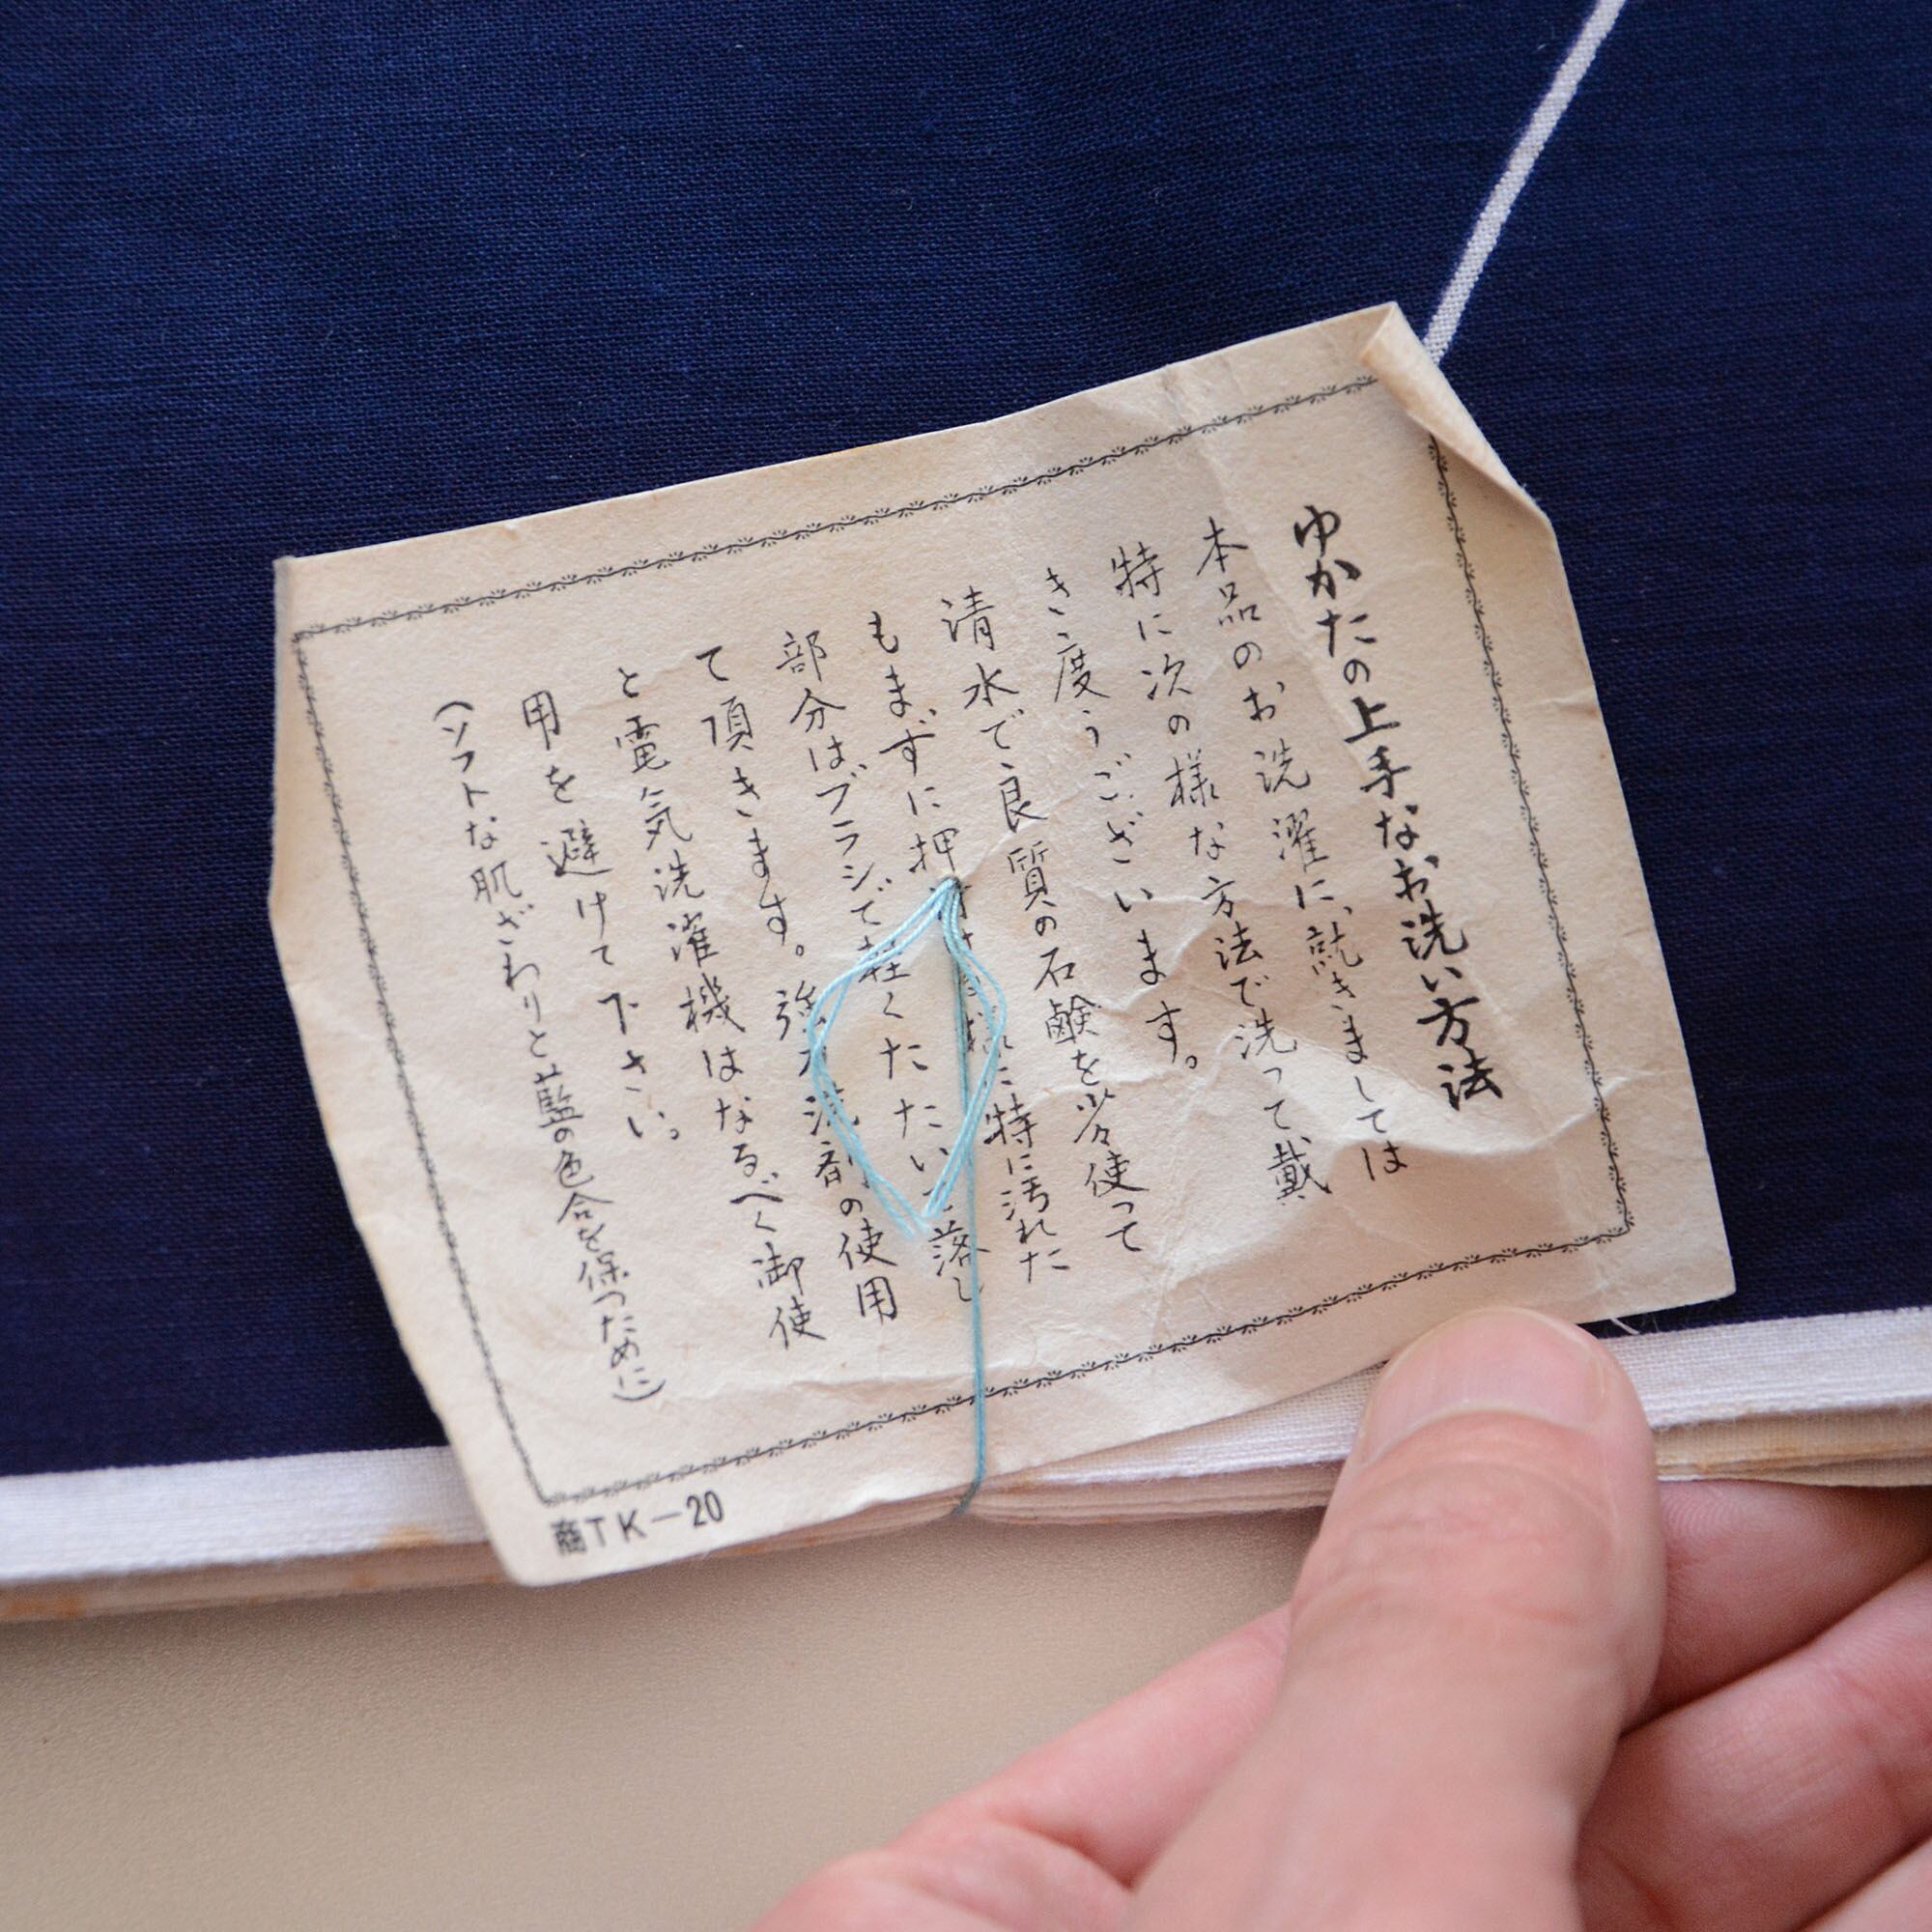 ゆかたの上手なお洗い方法
本品のお洗濯に、就きましては
特に次の様な方法で洗って戴
き度うございます。
清水で良質の石鹸を少々使って
もまずに押 特に汚れた
部分は、ブラシで軽くたたい 落し
て頂きます。強力洗剤の使用
と電気洗濯機はなるべく御使
用を避けて下さい。
(ソフトな肌ざわりと藍の色合を保つために)
商TK-20